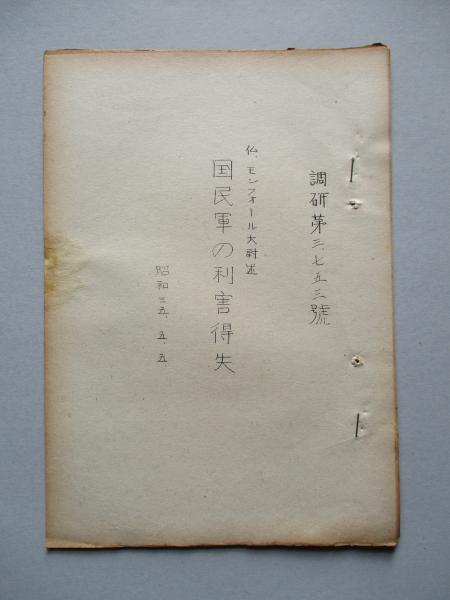 調研第三、七五三號
仏、モンフォール大尉述
国民軍の利害得失
昭和三五、五、五